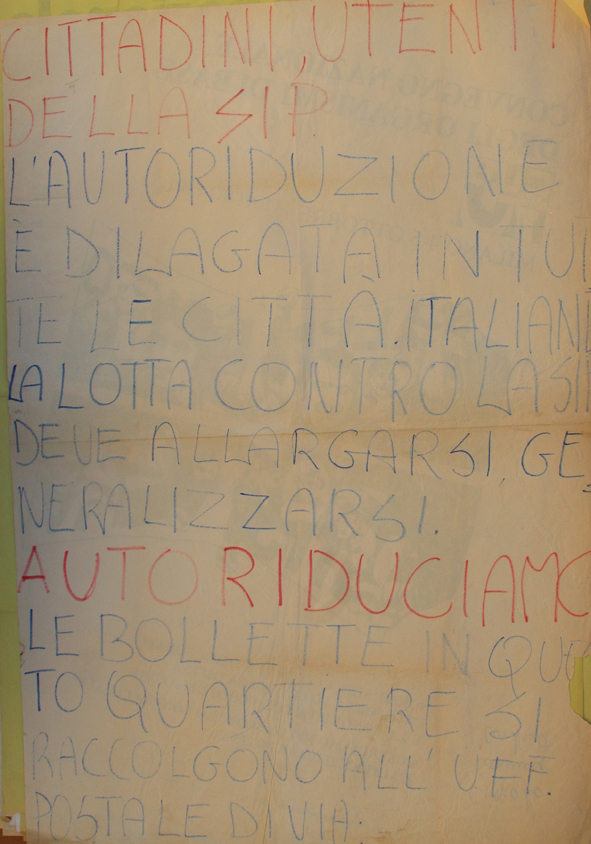 CITTADINI, UTENTI
DELLA SIP.
L'AUTORIDUZIONE
È DILAGATA IN TUT
TE LE CITTÀ. ITALIANE
LA LOTTA CONTRO LA SIP
DEVE ALLARGARSI, GE=
NERALIZZARSI.
AUTORIDUCIAMO
LE BOLLETTE IN QUES
TO QUARTIERE SI
RACCOLGONO ALL' UFF.
POSTALE DI VIA.